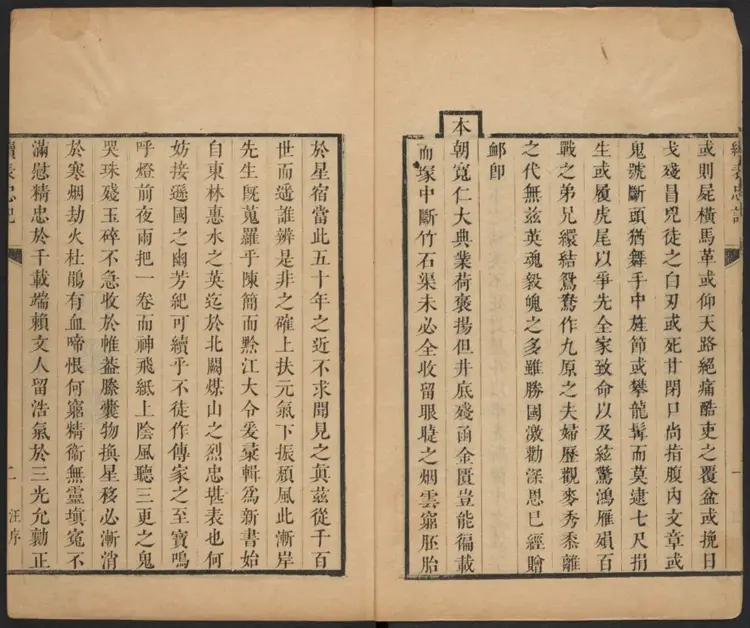 續表忠記 一
或則屍橫馬革或仰天路絕痛酷吏之覆盆或挽日
戈殘昌兇徒之白刃或死甘閉口尚指腹內文章或
鬼號斷頭猶舞手中旌節或攀龍髯而莫逮七尺捐
生或履虎尾以爭先全家致命以及絃驚鴻雁殞百
戰之弟兄繯結鴛鴦作九原之夫婦歷觀麥秀黍離
之代無茲英魂毅魄之多雖勝國激勸深思已經贈
卹卽
本朝寬仁大典業荷褒揚但井底殘函金匱豈能徧載
而塚中斷竹石渠未必全收留眼睫之烟雲窮胚胎
於星宿當此五十年之近不求聞見之眞茲從千百
世而遥誰辨是非之確上扶元氣下振頹風此漸岸
先生旣蒐羅乎陳簡而黔江大令爰彙輯爲新書始
自東林惠水之英迄於北闕煤山之烈忠堪表也何
妨接遜國之幽芳紀可續乎不徒作傳家之至寶嗚
呼燈前夜雨把一卷而神飛紙上陰風聽三更之鬼
哭珠殘玉碎不急收於帷蓋縢囊物換星移必漸消
於寒烟劫火杜鵑有血啼恨何窮精衞無靈塡寃不
滿慰精忠於千載端賴文人留浩氣於三光允勷正
續表忠記 二 汪序